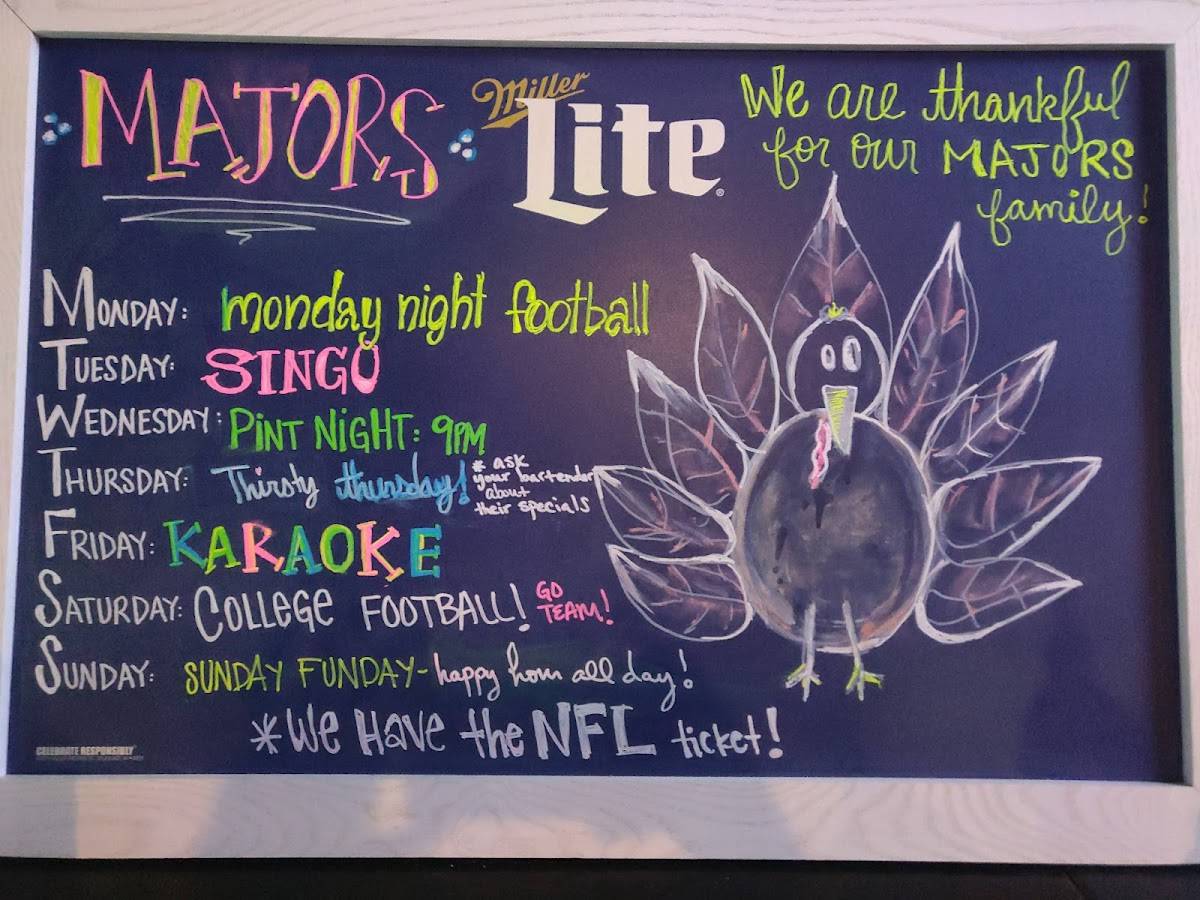 MAJORS
Miller
Lite
We are thankful
for our MAJORS
family!
MONDAY: monday night football
TUESDAY: SINGO
WEDNESDAY: PINT NIGHT: 9PM
THURSDAY: Thirsty thursday! * ask
your bartender
about
their specials
FRIDAY: KARAOKE
SATURDAY: COLLEGE FOOTBALL! GO
TEAM!
SUNDAY: SUNDAY FUNDAY- happy hour all day!
*We Have the NFL ticket!
CELEBRATE RESPONSIBLY